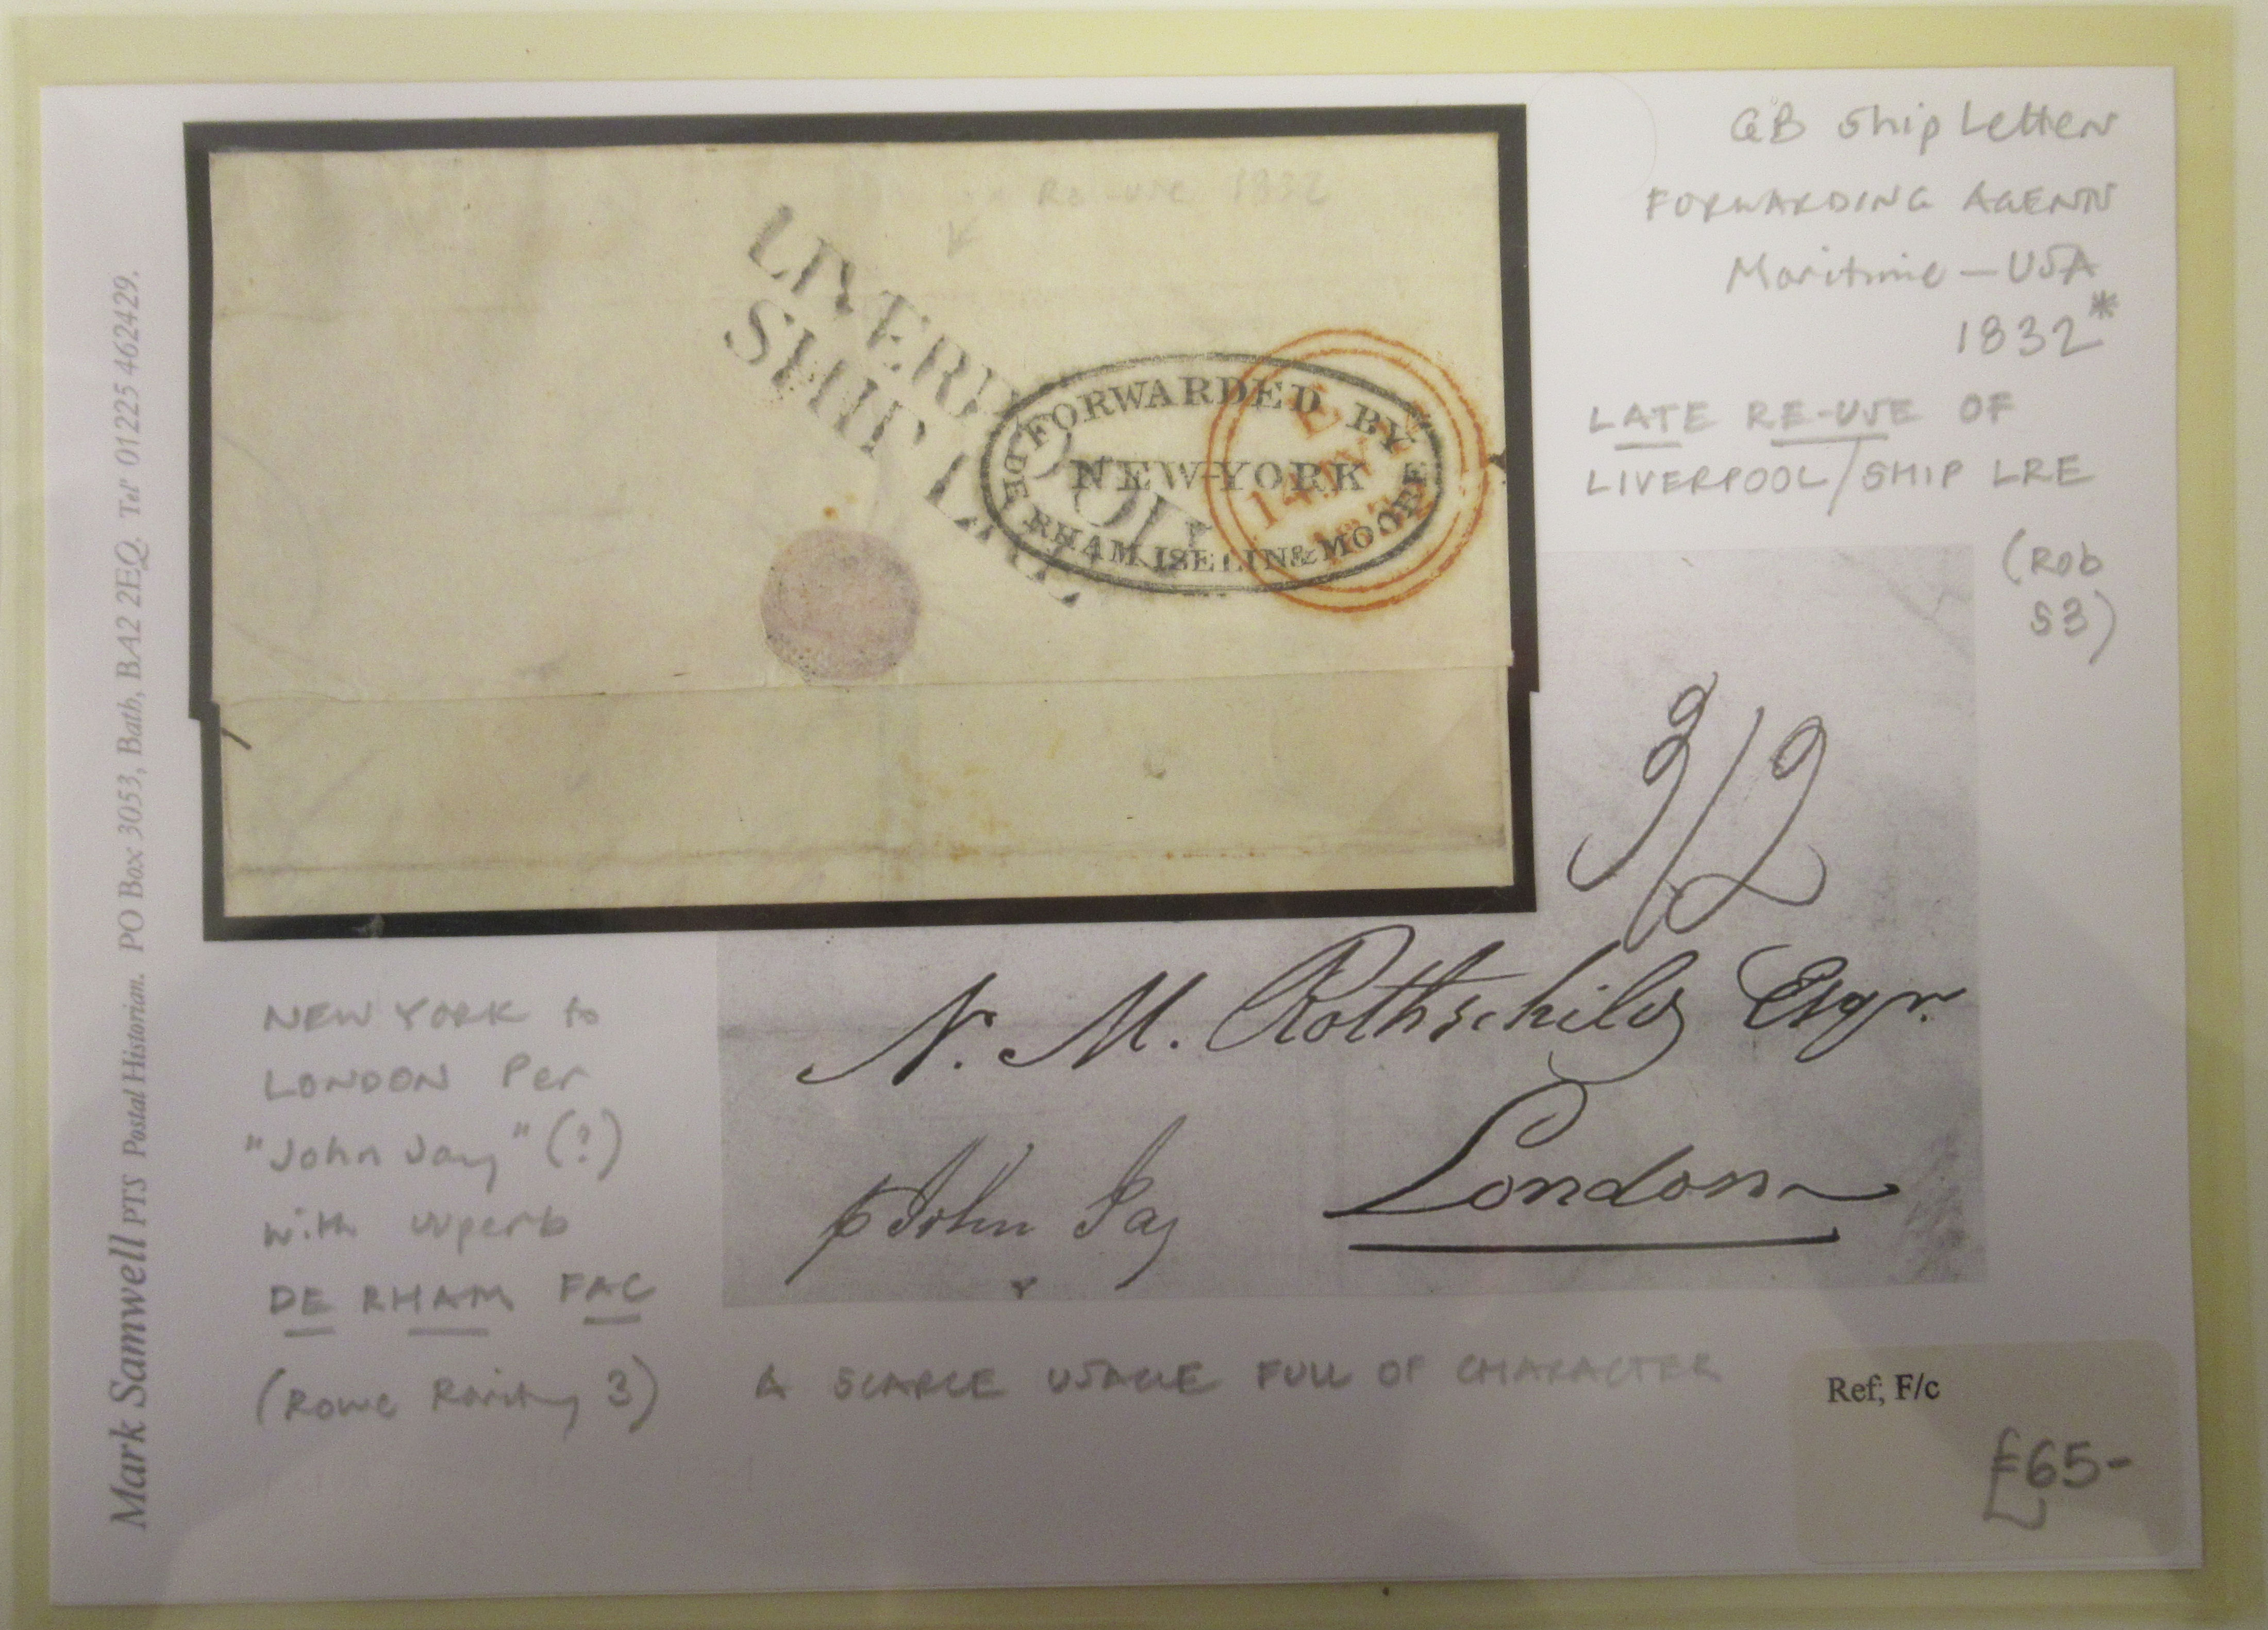 Mark Samwell PTS Postal Historian. PO Box 3053, Bath, BA2 2EQ. Tel' 01225 462429.
Re-use 1832
LIVERPOOL
SHIP LRE
FORWARDED BY
NEW-YORK
DE RHAM ISELIN & MOORE
E
14
GB Ship Letter
FORWARDING AGENTS
Maritime - USA
1832*
LATE RE-USE OF
LIVERPOOL/SHIP LRE
(Rob
S3)
3/2
N. M. Rothschild Esqr.
London
p John Jay
NEW YORK to
LONDON Per
"John Jay" (?)
with superb
DE RHAM FAC
(Rowe Rarity 3)
A SCARCE USAGE FULL OF CHARACTER
Ref; F/c
£65-